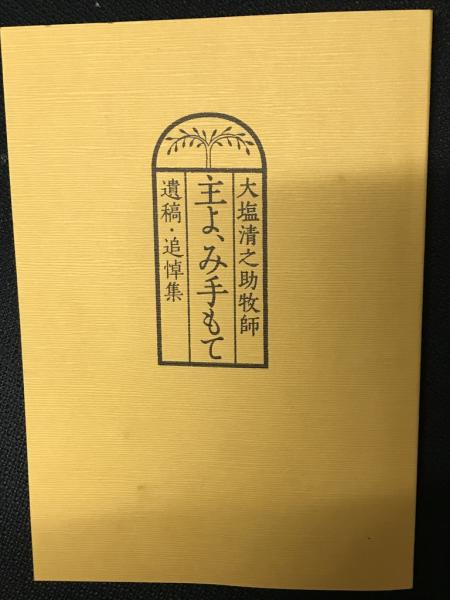 大塩清之助牧師
主よ、み手もて
遺稿・追悼集